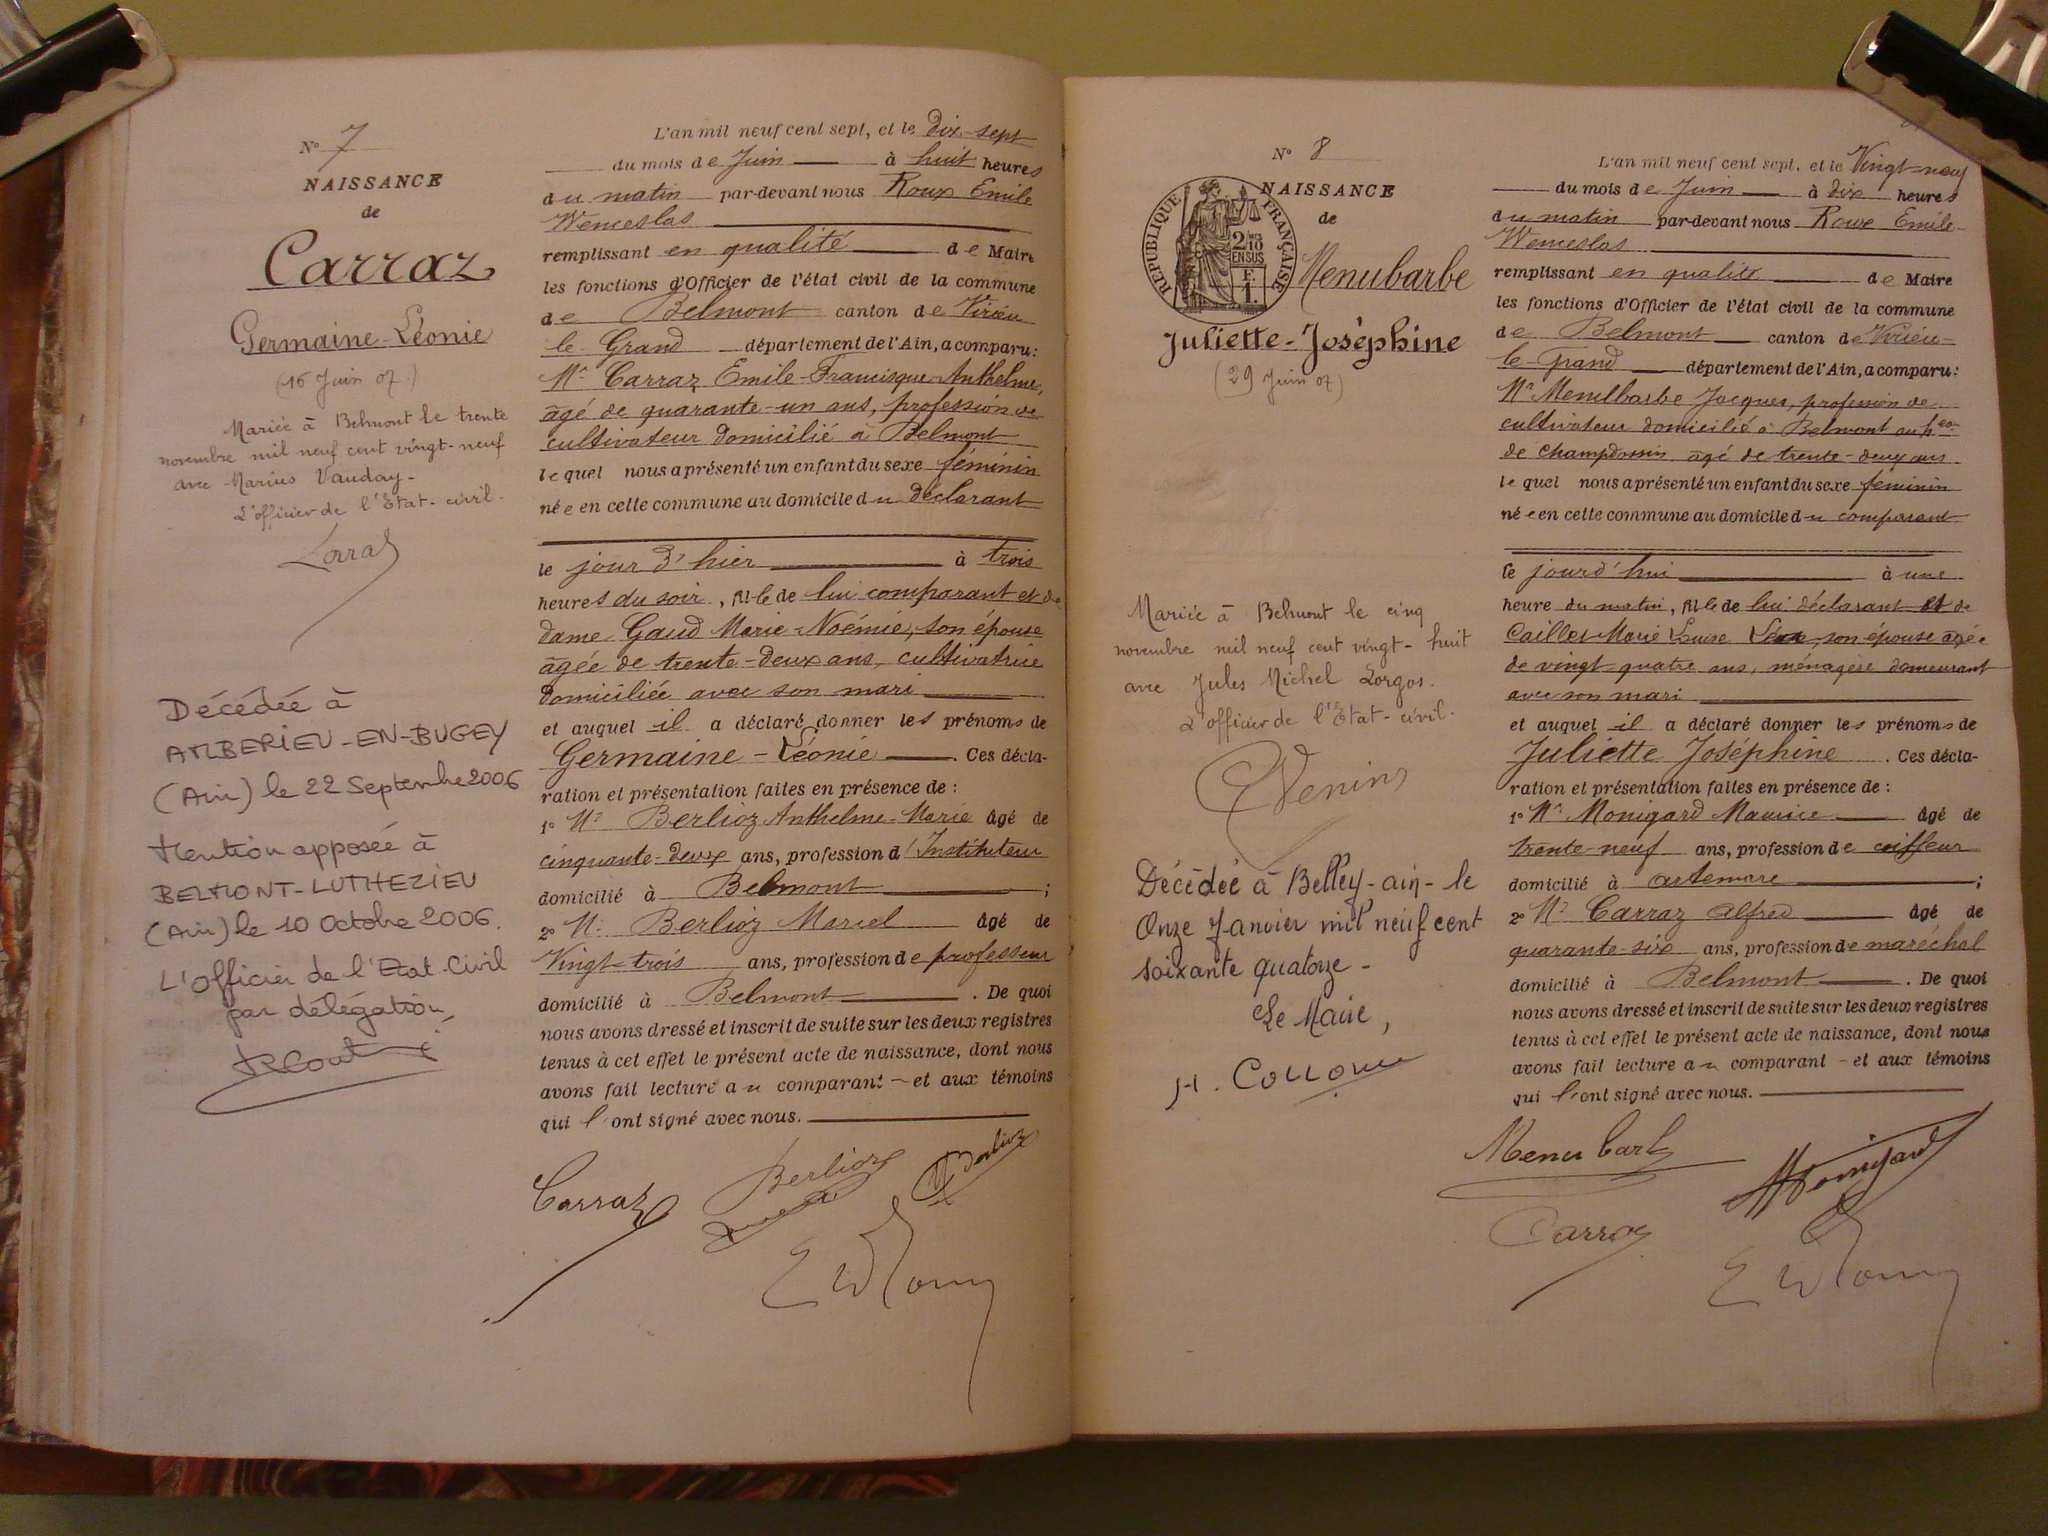 N° 7
NAISSANCE
de
Carraz
Germaine-Léonie
(16 Juin 07)
Mariée à Belmont le trente
novembre mil neuf cent vingt-neuf
avec Marius Vauday-
L'officier de l'Etat-civil.
Décédée à
AMBERIEU-EN-BUGEY
(Ain) le 22 Septembre 2006
Mention apposée à
BELMONT-LUTHEZIEU
(Ain) le 10 Octobre 2006.
L'officier de l'Etat-Civil
par délégation,
L'an mil neuf cent sept, et le dix-sept
du mois de Juin à huit heures
du matin par-devant nous Roux Emile
Wenceslas
remplissant en qualité de Maire
les fonctions d'Officier de l'état civil de la commune
de Belmont canton de Virieu
le Grand département de l'Ain, a comparu:
Mr Carraz Emile-Francisque-Anthelme,
âgé de quarante-un ans, profession de
cultivateur domicilié à Belmont
lequel nous a présenté un enfant du sexe féminin
née en cette commune au domicile du déclarant
le jour d'hier à trois
heures du soir, fille de lui comparant et de
dame Gaud Marie-Noémie, son épouse
âgée de trente-deux ans, cultivatrice
domiciliée avec son mari
et auquel il a déclaré donner les prénoms de
Germaine-Léonie. Ces décla-
ration et présentation faites en présence de :
1° Mr Berlioz Anthelme-Marie âgé de
cinquante-deux ans, profession d'Instituteur
domicilié à Belmont ;
2° M. Berlioz Marcel âgé de
Vingt-trois ans, profession de professeur
domicilié à Belmont. De quoi
nous avons dressé et inscrit de suite sur les deux registres
tenus à cet effet le présent acte de naissance, dont nous
avons fait lecture au comparant et aux témoins
qui l'ont signé avec nous.
Carraz Berlioz Berlioz
N° 8
NAISSANCE
de
RÉPUBLIQUE FRANÇAISE
2/10
EN SUS
F.
1.
Menubarbe
Juliette-Joséphine
(29 Juin 07)
Mariée à Belmont le cinq
novembre mil neuf cent vingt-huit
avec Jules Michel Lorgos.
L'officier de l'Etat-civil.
Venin
Décédée à Belley-ain-le
Onze Janvier mil neuf cent
soixante quatorze -
Le Maire,
L'an mil neuf cent sept, et le Vingt-neuf
du mois de Juin à dix heures
du matin par-devant nous Roux Emile-
Wenceslas
remplissant en qualité de Maire
les fonctions d'Officier de l'état civil de la commune
de Belmont canton de Virieu-
le-grand département de l'Ain, a comparu:
Mr Menubarbe Jacques, profession de
cultivateur domicilié à Belmont au heau
de Champdossin âgé de trente-deux ans
lequel nous a présenté un enfant du sexe féminin
née en cette commune au domicile du comparant
le jourd'hui à une
heure du matin, fille de lui déclarant et de
Cailler Marie Louise son épouse agée
de vingt-quatre ans, ménagère demeurant
avec son mari
et auquel il a déclaré donner les prénoms de
Juliette Joséphine. Ces décla-
ration et présentation faites en présence de :
1° Mr Monigard Maurice âgé de
trente-neuf ans, profession de coiffeur
domicilié à artemare ;
2° Mr Carraz Alfred âgé de
quarante-six ans, profession de maréchal
domicilié à Belmont. De quoi
nous avons dressé et inscrit de suite sur les deux registres
tenus à cet effet le présent acte de naissance, dont nous
avons fait lecture au comparant et aux témoins
qui l'ont signé avec nous.
Menubarbe Monigard
Carraz